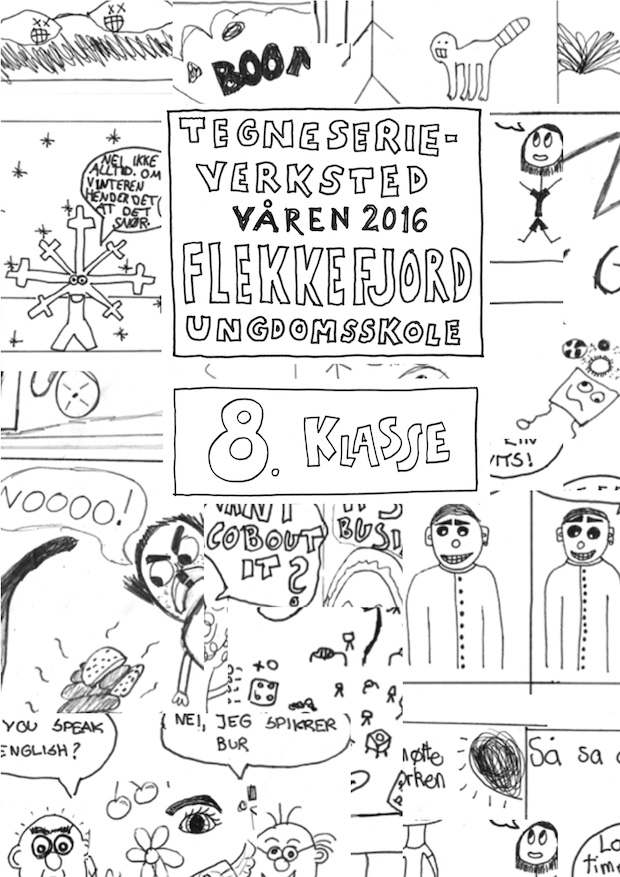 BOOM
TEGNESERIE-
VERKSTED
VÅREN 2016
FLEKKEFJORD
UNGDOMSSKOLE
NEI, IKKE
ALLTID. OM
VINTEREN
HENDER DET
AT DET
SNØR.
8. KLASSE
VITS!
NOOOO!
COBOUT
IT?
YOU SPEAK
ENGLISH?
NEI, JEG SPIKRER
BUR
Så sa